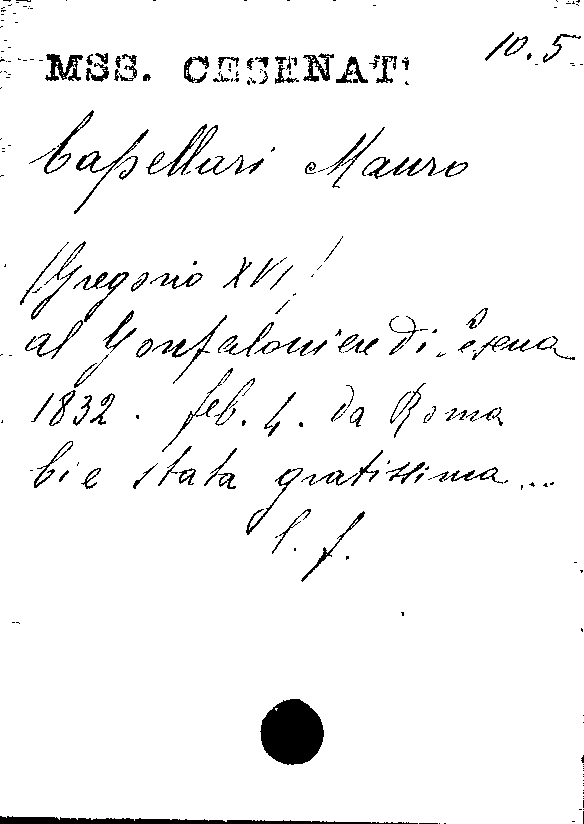 10.5
MSS. CESENATI
Capellari Mauro
(Gregorio XVI)
al Gonfaloniere di Cesena
1832. feb. 4. da Roma
Ci è stata gratissima...
l. f.